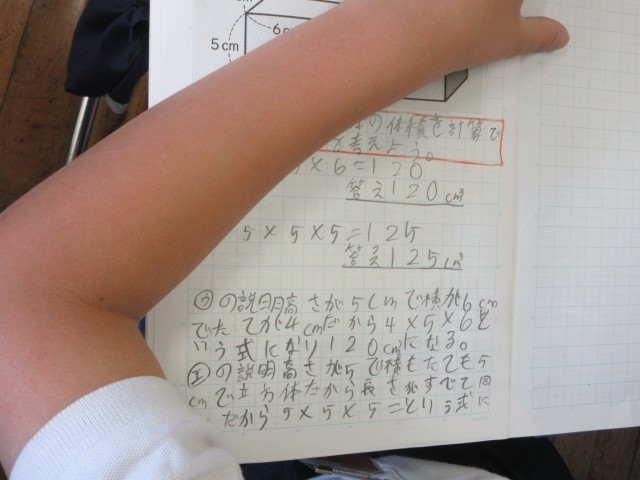 cm
5cm
6c
の体積を計算で
考えよう。
×6=120
答え120cm³
5×5×5=125
答え125cm³
㋒の説明高さが5cmで横が6cm
でたてが4cmだから4×5×6と
いう式になり120cm³になる。
㋓の説明高さが5で横もたても5
cmで立方体だから長さがすべて同
だから5×5×5=という式に